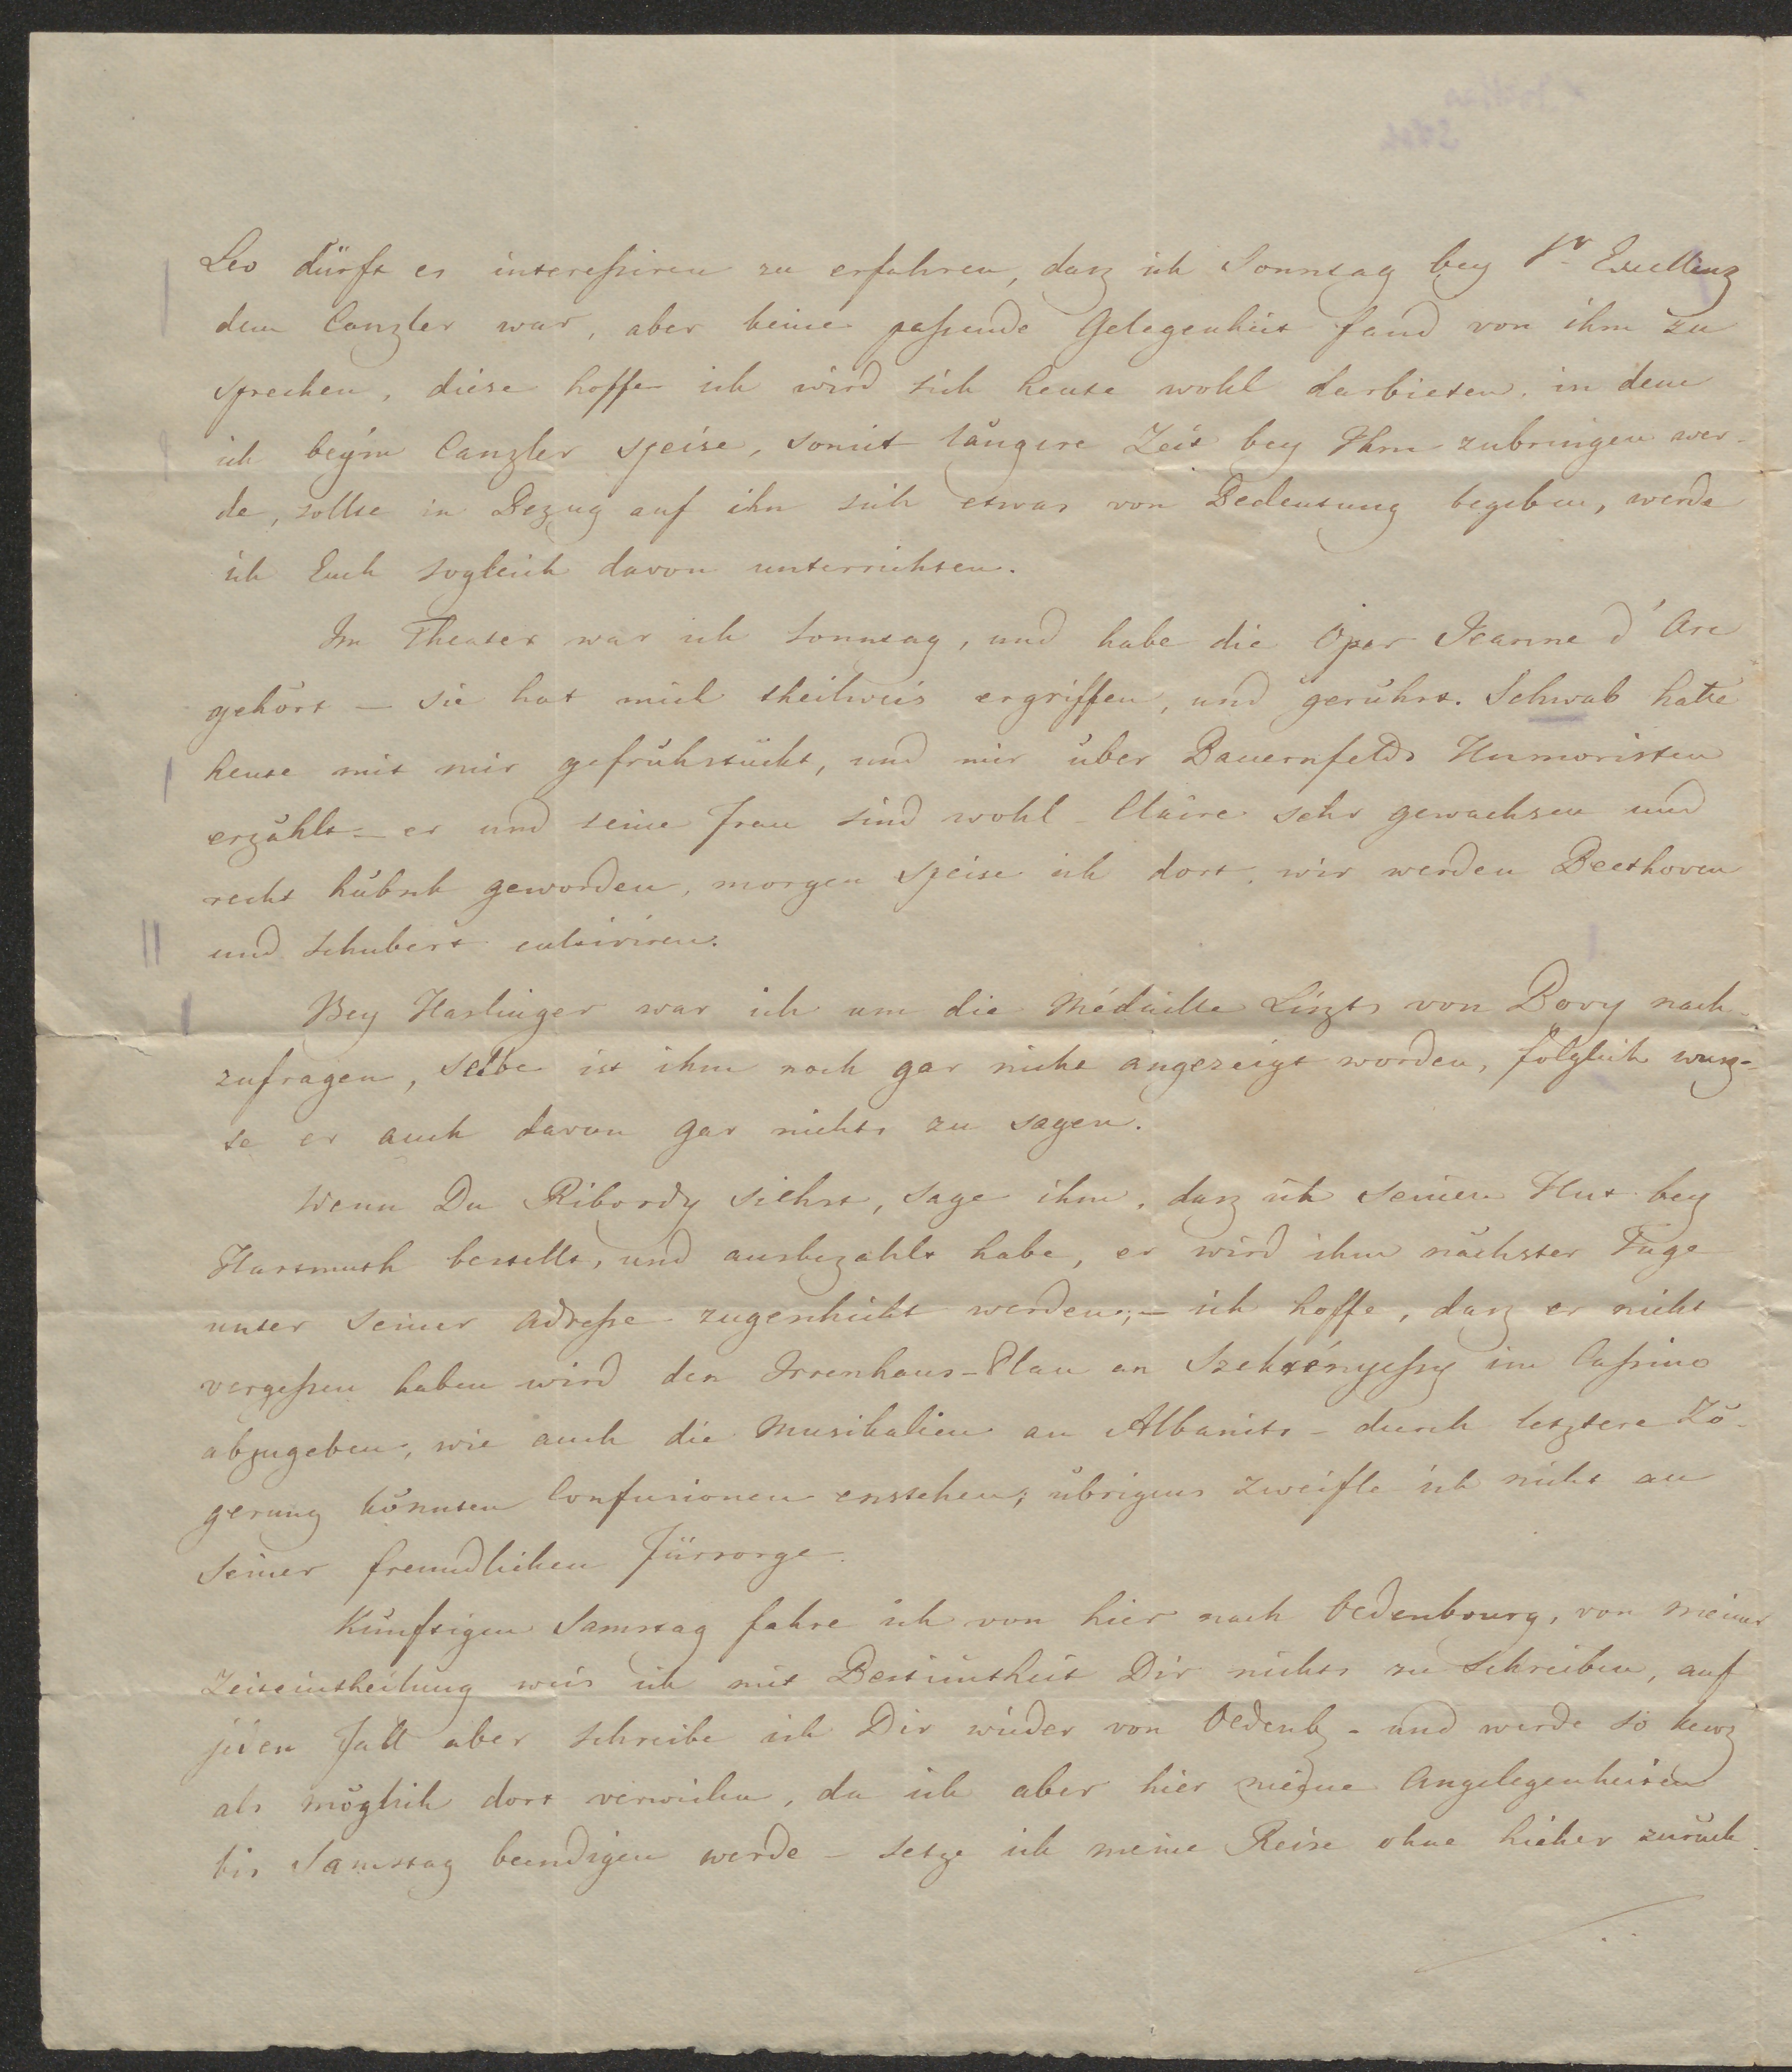 Leo dürft es interessiren zu erfahren, dasz ich Sonntag bey Sr Excellenz
dem Canzler war, aber keine passende Gelegenheit fand von ihm zu
sprechen, diese hoffe ich wird sich heute wohl darbieten, in dem
ich beym Canzler speise, somit längere Zeit bey Ihm zubringen wer-
de, sollte in Bezug auf ihn sich etwas von Bedeutung begeben, werde
ich Euch sogleich davon unterrichten.
Im Theater war ich Sonntag, und habe die Oper Jeanne d'Arc
gehört – sie hat mich theilweis ergriffen, und gerührt. Schwab hatte
heute mit mir gefrühstückt, und mir über Bauernfelds Humoristen
erzählt – er und seine Frau sind wohl – Claire sehr gewachsen und
recht hübsch geworden, morgen speise ich dort, wir werden Beethoven
und Schubert cultiviren.
Bey Haslinger war ich um die Médaille Liszts von Bovy nach-
zufragen, selbe ist ihm noch gar nicht angezeigt worden, folglich wusz-
te er auch davon gar nichts zu sagen.
Wenn Du Ribordy siehst, sage ihm, dasz ich seinen Hut bey
Hartmuth bestellt, und ausbezahlt habe, er wird ihm nächster Tage
unter seiner Adresse zugeschickt werden; – ich hoffe, dasz er nicht
vergessen haben wird den Irrenhaus-Plan an Szekrényessy im Cassino
abzugeben, wie auch die Musikalien an Albanits – durch letztere Zö-
gerung könnten Confusionen enstehen; übrigens zweifle ich nicht an
seiner freundlichen Fürsorge.
Künftigen Samstag fahre ich von hier nach Oedenbourg, von meiner
Zeiteintheilung weis ich mit Bestimtheit Dir nichts zu schreiben, auf
jeden Fall aber schreibe ich Dir wieder von Oedenbg – und werde so kurz
als möglich dort verweilen, da ich aber hier meine Angelegenheiten
bis Samstag beendigen werde – setze ich meine Reise ohne hieher zurück